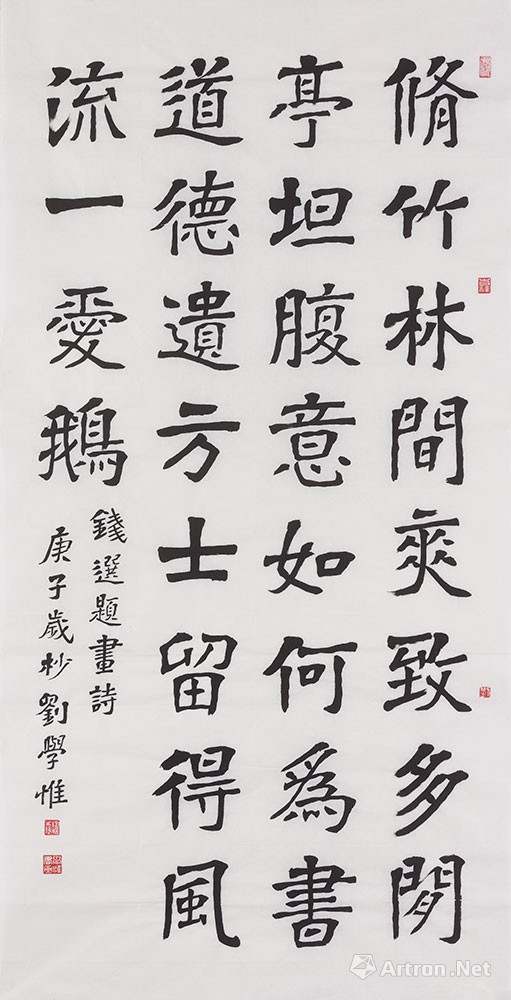 脩竹林間爽致多閒
亭坦腹意如何爲書
道德遺方士留得風
流一愛鵝
錢選題畫詩
庚子歲杪劉學惟
Artron.Net